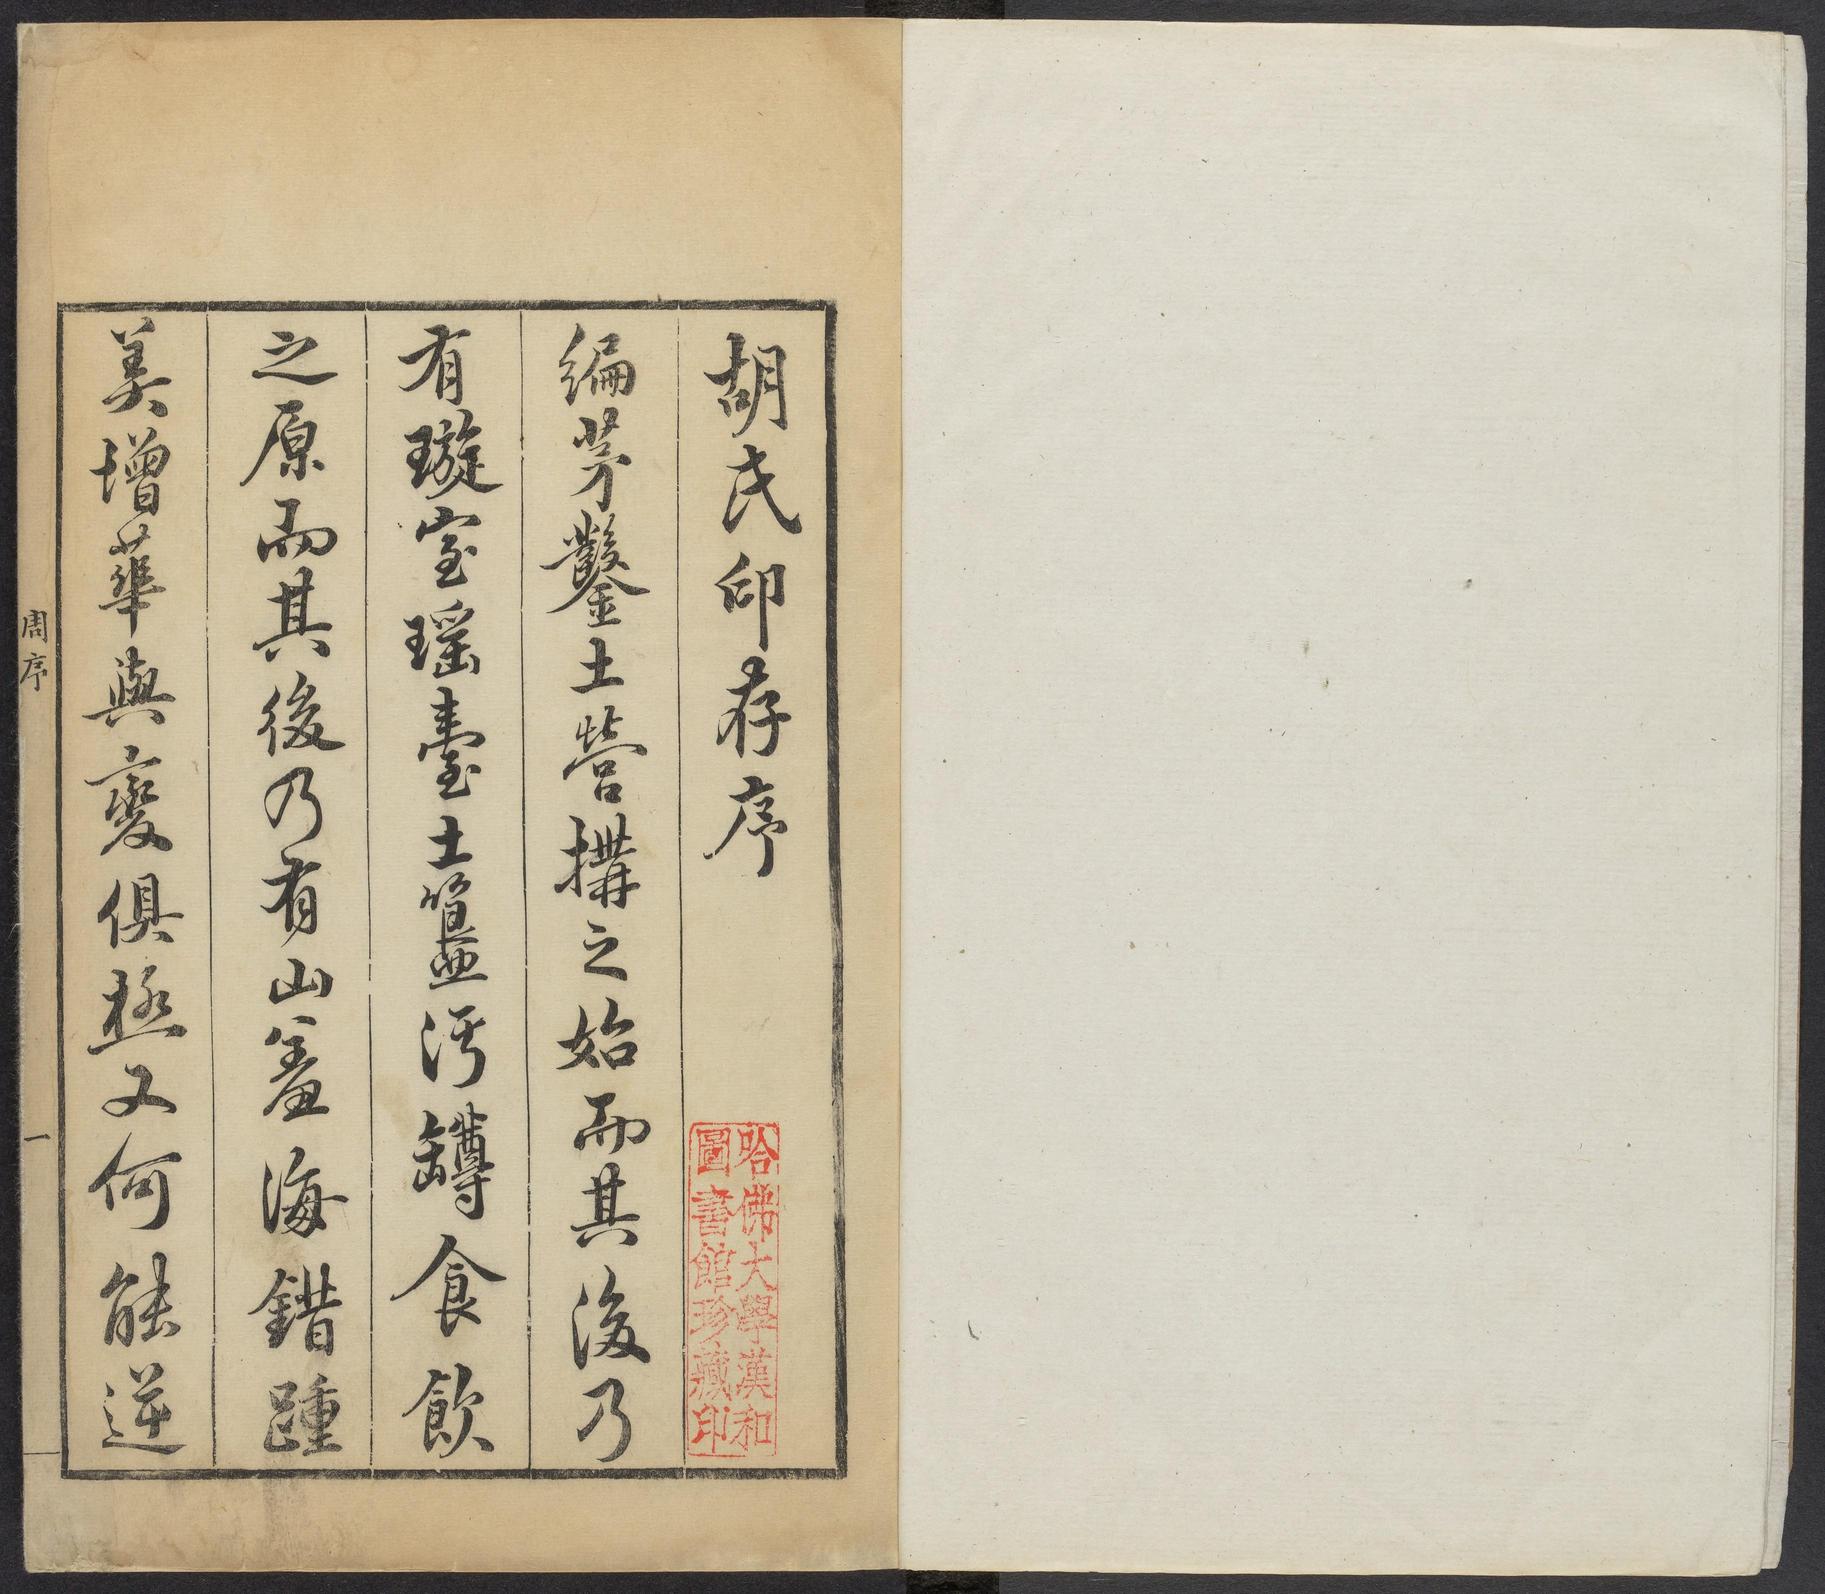 胡氏印存序
編茅鑿土營搆之始而其後乃
有璇室瑶臺土簋汙罇食飲
之原而其後乃有山羞海錯踵
美增華與變俱極又何能逆
哈佛大學漢和
圖書館珍藏印
周序
一